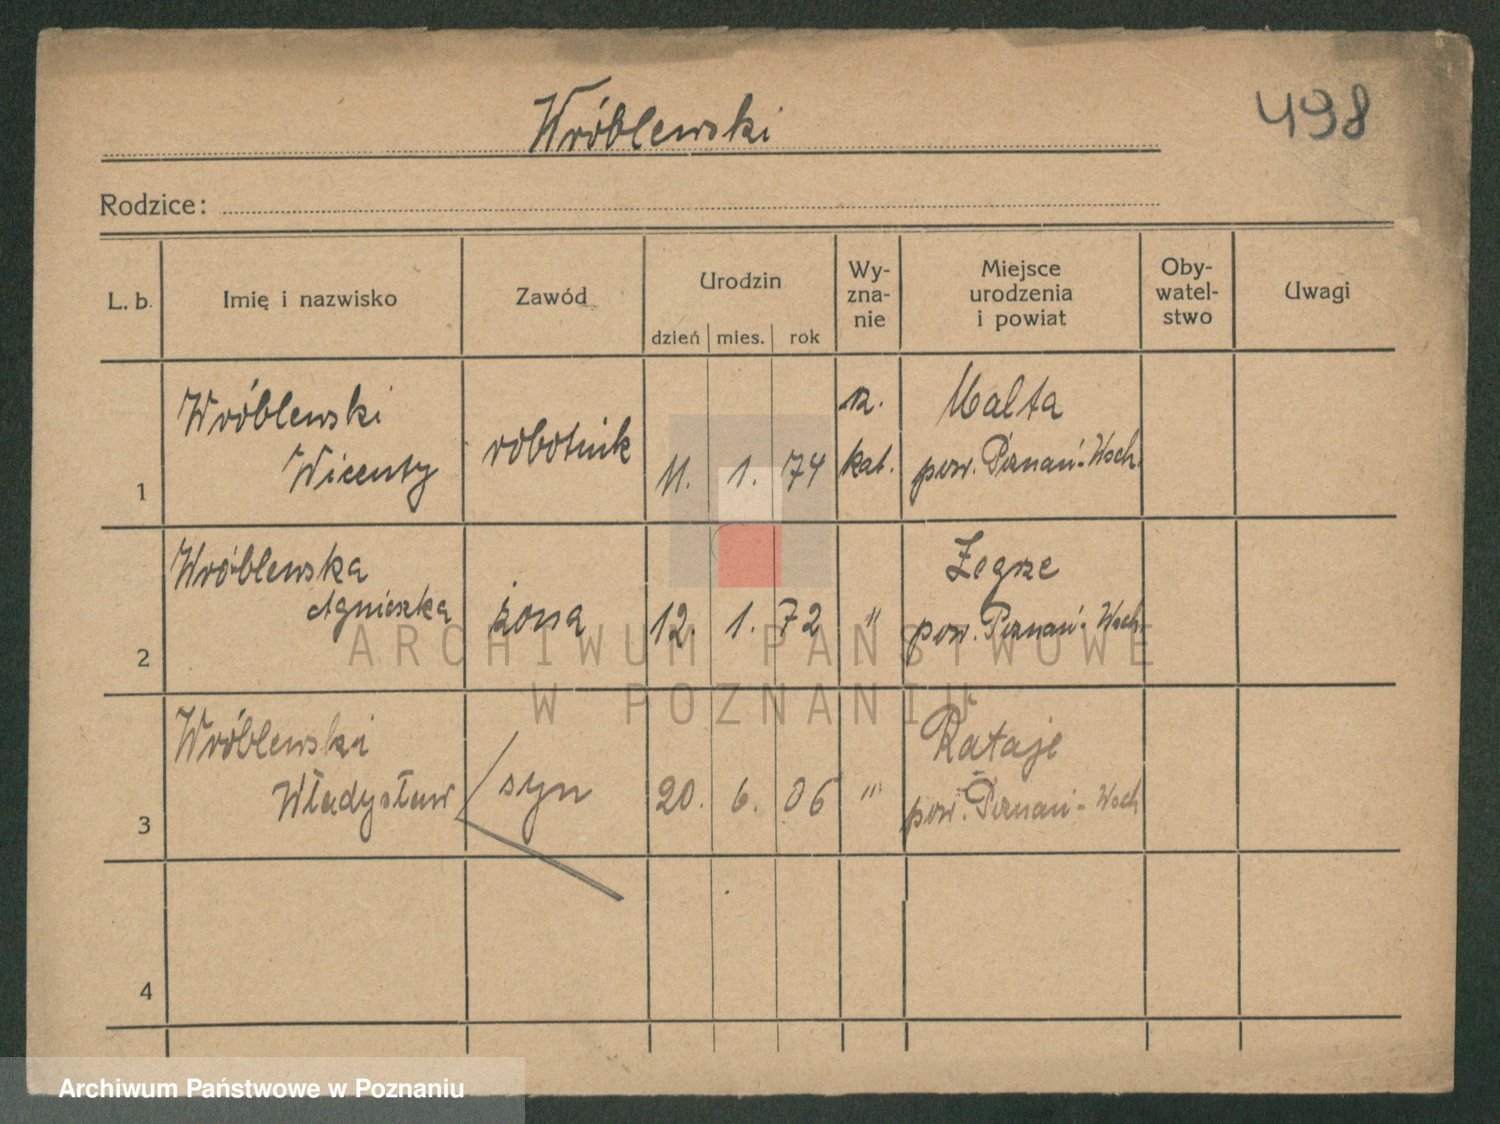 Wróblewski
498
Rodzice:
L. b. Imię i nazwisko Zawód Urodzin Wy-zna-nie Miejsce urodzenia i powiat Oby-watel-stwo Uwagi
dzień mies. rok
Wróblewski
Wicenty
1 robotnik 11. 1. 74 rz. kat. Malta
pow. Poznań-Wsch.
Wróblewska
Agnieszka
2 żona 12. 1. 72 " Zegrze
pow. Poznań-Wsch.
Wróblewski
Władysław
3 syn 20. 6. 06 " Rataje
pow. Poznań-Wsch
4
ARCHIWUM PAŃSTWOWE
W POZNANIU
Archiwum Państwowe w Poznaniu